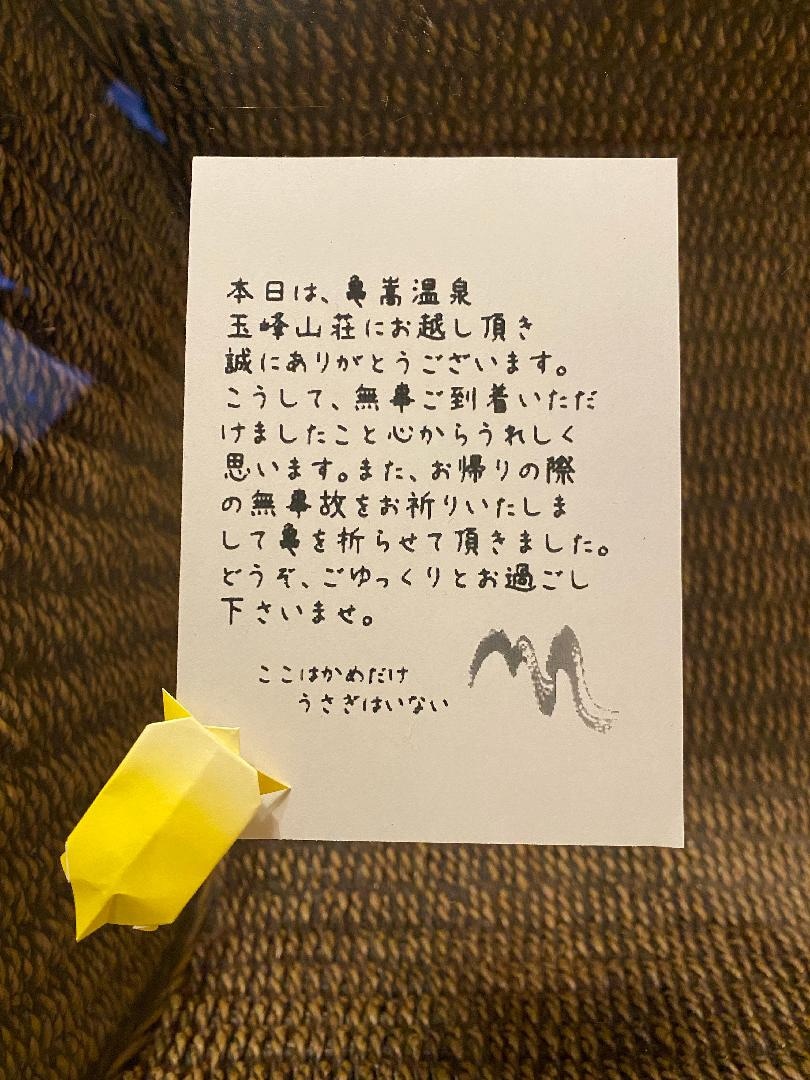 本日は、亀嵩温泉
玉峰山荘にお越し頂き
誠にありがとうございます。
こうして、無事ご到着いただ
けましたこと心からうれしく
思います。また、お帰りの際
の無事故をお祈りいたしま
して亀を祈らせて頂きました。
どうぞ、ごゆっくりとお過ごし
下さいませ。
ここはかめだけ
うさぎはいない